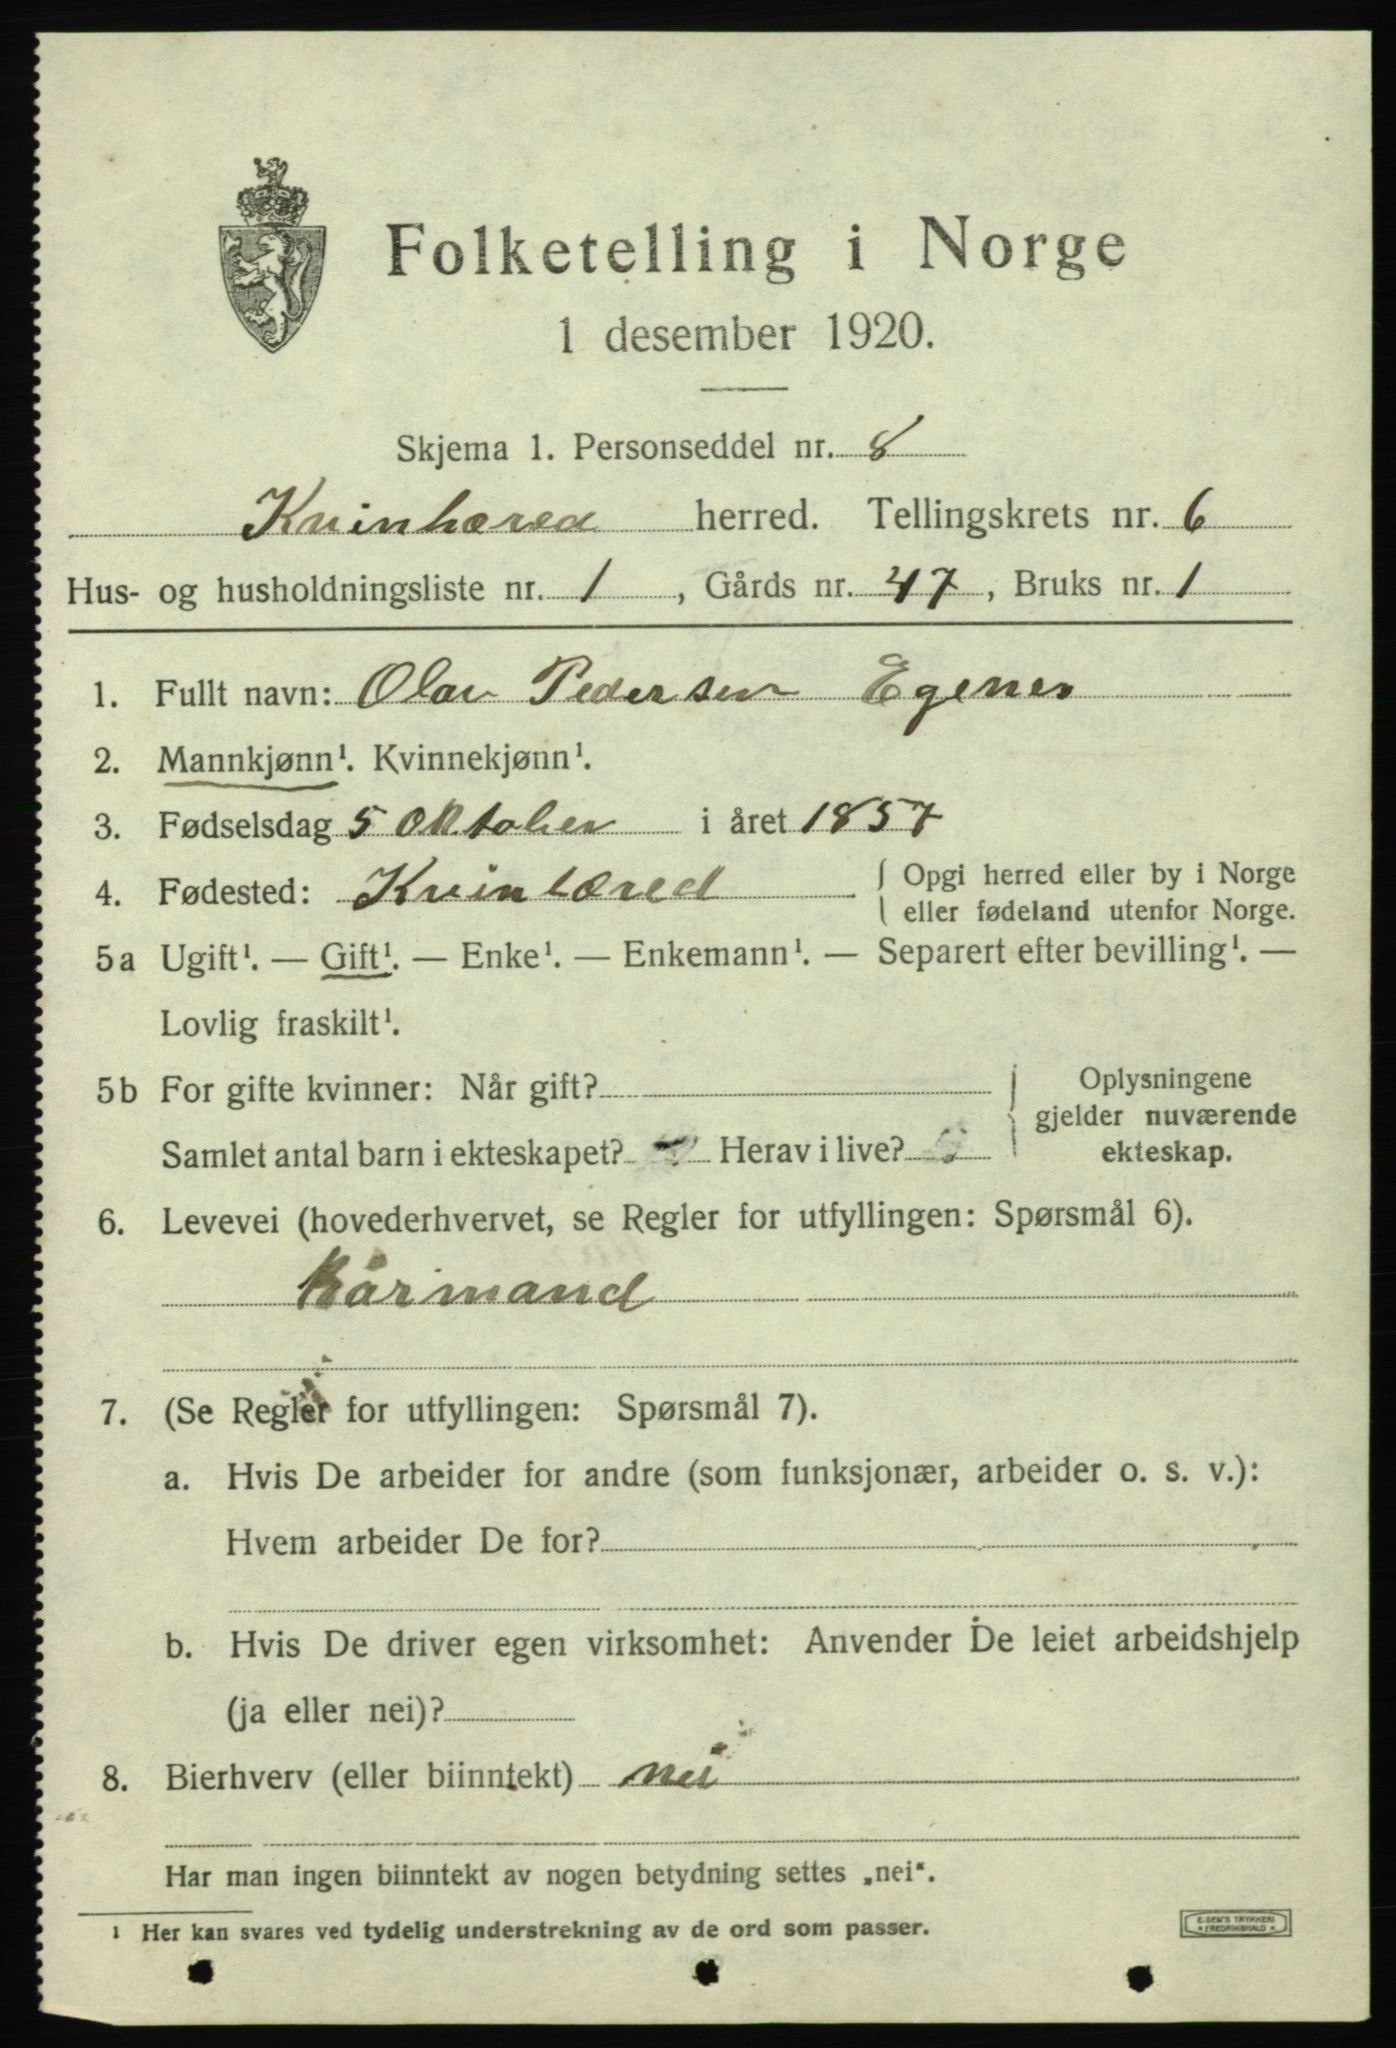 Folketelling i Norge
1 desember 1920.
Skjema 1. Personseddel nr. 8
Kvinhæred herred. Tellingskrets nr. 6
Hus- og husholdningsliste nr. 1, Gårds nr. 47, Bruks nr. 1
1. Fullt navn: Olav Pedersen Egenes
2. Mannkjønn¹. Kvinnekjønn¹.
3. Fødselsdag 5 Oktober i året 1857
4. Fødested: Kvinhæred { Opgi herred eller by i Norge
eller fødeland utenfor Norge.
5a Ugift¹. — Gift¹. — Enke¹. — Enkemann¹. — Separert efter bevilling¹. —
Lovlig fraskilt¹.
5b For gifte kvinner: Når gift? Oplysningene
gjelder nuværende
Samlet antal barn i ekteskapet? Herav i live? ekteskap.
6. Levevei (hovederhvervet, se Regler for utfyllingen: Spørsmål 6).
Kårmand
7. (Se Regler for utfyllingen: Spørsmål 7).
a. Hvis De arbeider for andre (som funksjonær, arbeider o. s. v.):
Hvem arbeider De for?
b. Hvis De driver egen virksomhet: Anvender De leiet arbeidshjelp
(ja eller nei)?
8. Bierhverv (eller biinntekt) nei
Har man ingen biinntekt av nogen betydning settes „nei“.
¹ Her kan svares ved tydelig understrekning av de ord som passer.
E. SEM'S TRYKKERI
FREDRIKSHALD